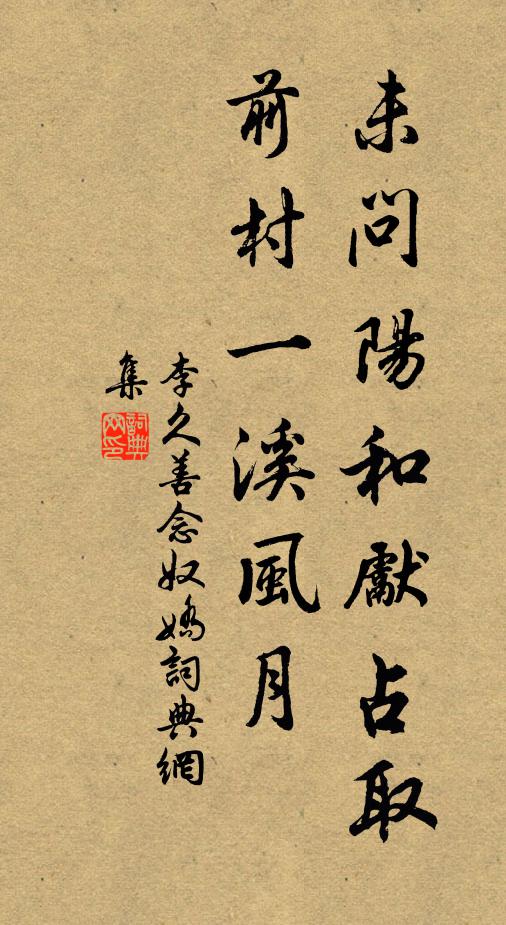 未問陽和獻占取
前村一溪風月
李久善念奴嬌詞典網
集
詞典網印